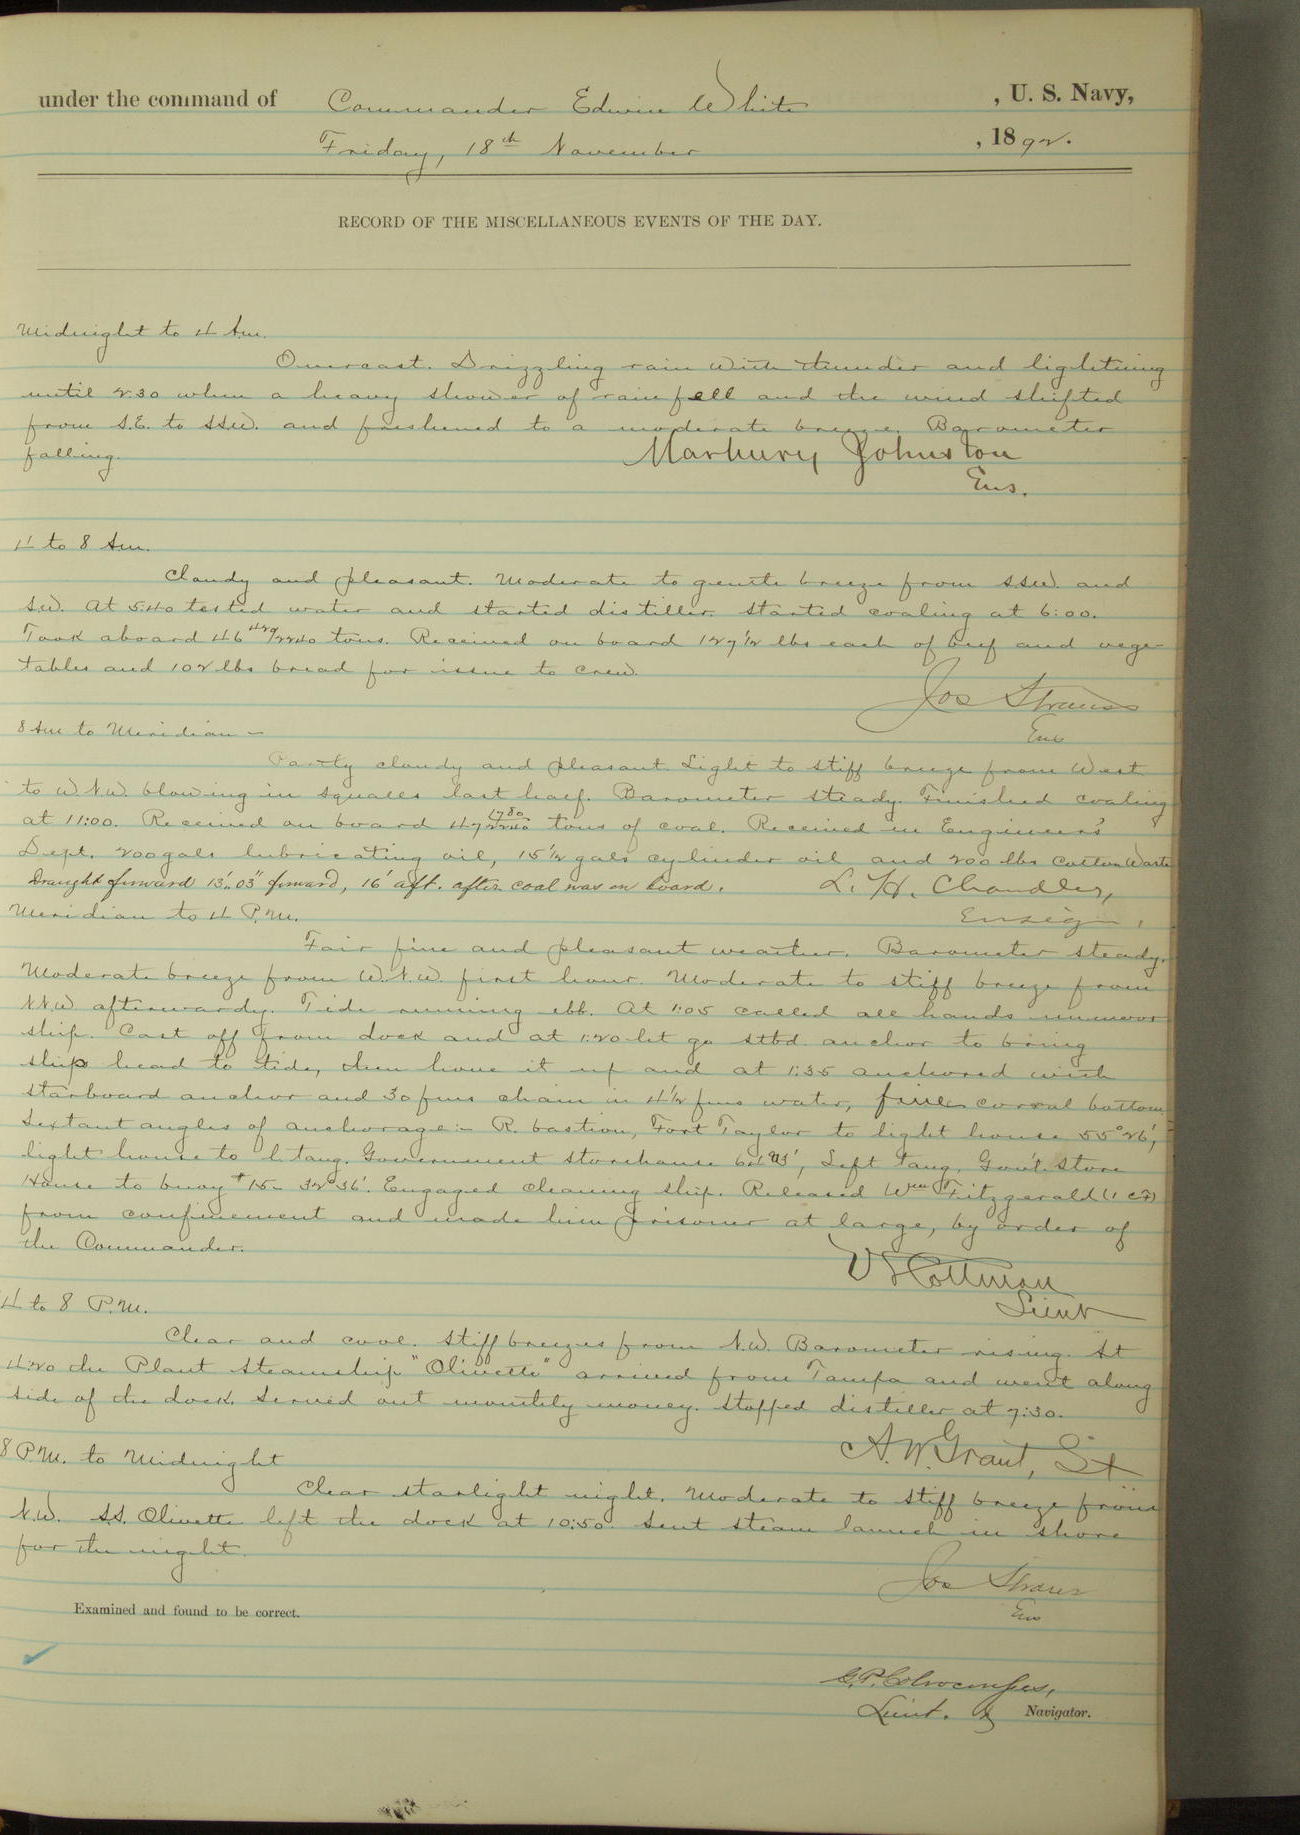 under the command of Commander Edwin White , U. S. Navy,
Friday, 18th November , 1892.
RECORD OF THE MISCELLANEOUS EVENTS OF THE DAY.
Midnight to 4 Am.
Overcast. Drizzling rain with thunder and lightning
until 2.30 when a heavy shower of rain fell and the wind shifted
from S.E. to SSW. and freshened to a moderate breeze. Barometer
falling.
Marbury Johnston
Ens.
4 to 8 Am.
Cloudy and pleasant. Moderate to gentle breeze from S.SW. and
S.W. At 5:40 tested water and started distiller. Started coaling at 6:00.
Took aboard 46 429/2240 tons. Received on board 127 1/2 lbs each of beef and vege-
tables and 102 lbs bread for issue to crew.
Jos Strauss
Ens
8 Am to Meridian -
Partly cloudy and pleasant. Light to stiff breeze from West
to W.N.W. blowing in squalls last half. Barometer steady. Finished coaling
at 11:00. Received on board 47 1780/2240 tons of coal. Received in Engineer's
Dept. 200 gals lubricating oil, 15 1/2 gals cylinder oil and 200 lbs Cotton Waste
Draught forward 13'.. 03" forward, 16' aft. after coal was on board.
L. H. Chandler,
Ensign,
Meridian to 4 P.M.
Fair fine and pleasant weather. Barometer steady.
Moderate breeze from W.N.W. first hour. Moderate to stiff breeze from
NNW afterwards. Tide running ebb. At 1:05 called all hands unmoor
ship. Cast off from dock and at 1:20 let go stbd. anchor to bring
ship head to tide, then hove it up and at 1:35 anchored with
starboard anchor and 30 fms chain in 4 1/2 fms water, fine corral bottom
Sextant angles of anchorage:- R. bastion, Fort Taylor to light house 55°26',
light house to l. tang. Government storehouse 64° , Left tang. Gov't. Store
House to buoy #15- 32°36'. Engaged cleaning ship. Released Wm Fitzgerald (1 cf)
from confinement and made him prisoner at large, by order of
the Commander.
Lieut
4 to 8 P.M.
Clear and cool. Stiff breezes from N.W. Barometer rising. At
4:20 the Plant Steamship "Olivette" arrived from Tampa and went along
side of the dock. Served out monthly money. Stopped distiller at 7:30.
A. W. Grant, Lt
8 P.M. to Midnight
Clear starlight night. Moderate to stiff breeze from
N.W. S.S. Olivette left the dock at 10:50. Sent steam launch in shore
for the night.
Jos Strauss
Ens
Examined and found to be correct.
G. P. Colvocoresses,
Lieut. & Navigator.